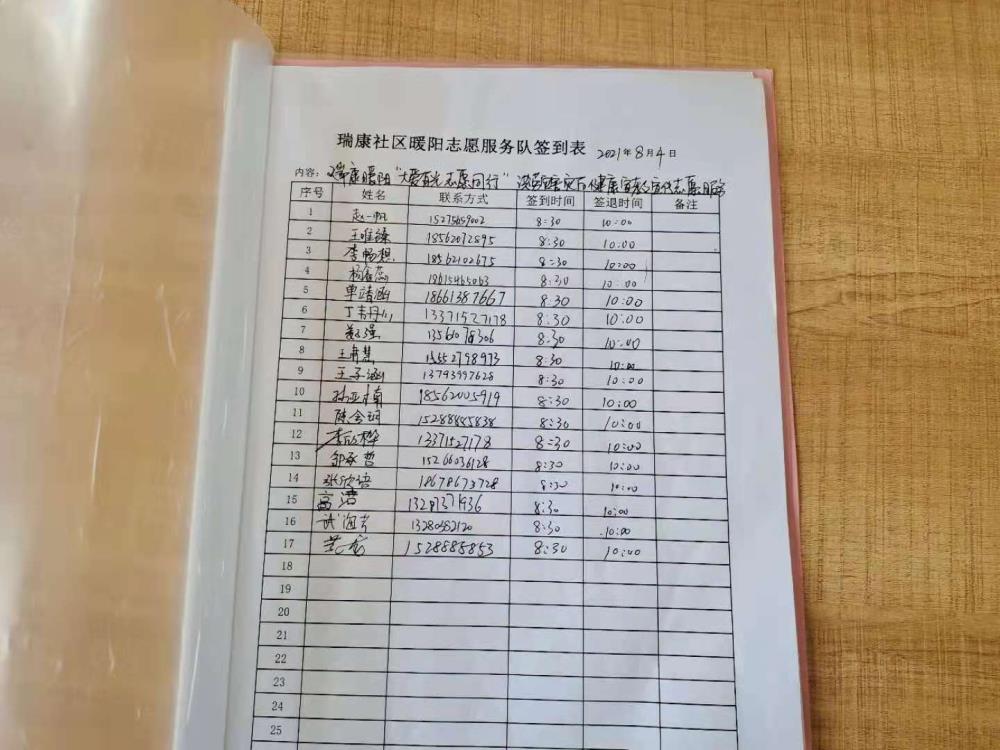 瑞康社区暖阳志愿服务队签到表 2021年8月4日
内容：瑞康暖阳"大爱有光 志愿同行" 健康 志愿服务
序号 姓名 联系方式 签到时间 签退时间 备注
1 赵一帆 15275659002 8:30 10:00
2 王唯臻 18562072895 8:30 10:00
3 李畅想 18562102675 8:30 10:00
4 杨鑫蕊 18615465063 8:30 10:00
5 单靖涵 18661387667 8:30 10:00
6 13371527178 8:30 10:00
7 13561078306 8:30 10:00
8 15552798973 8:30 10:00
9 王子涵 13793997628 8:30 10:00
10 孙亚楠 18562005919 8:30 10:00
11 陈金钥 15288845838 8:30 10:00
12 李欣桦 13371527178 8:30 10:00
13 邹承哲 15266036128 8:30 10:00
14 张欣语 18678673728 8:30 10:00
15 高浩 8:30 10:00
16 13280482120 8:30 10:00
17 1528885853 8:30 10:00
18
19
20
21
22
23
24
25